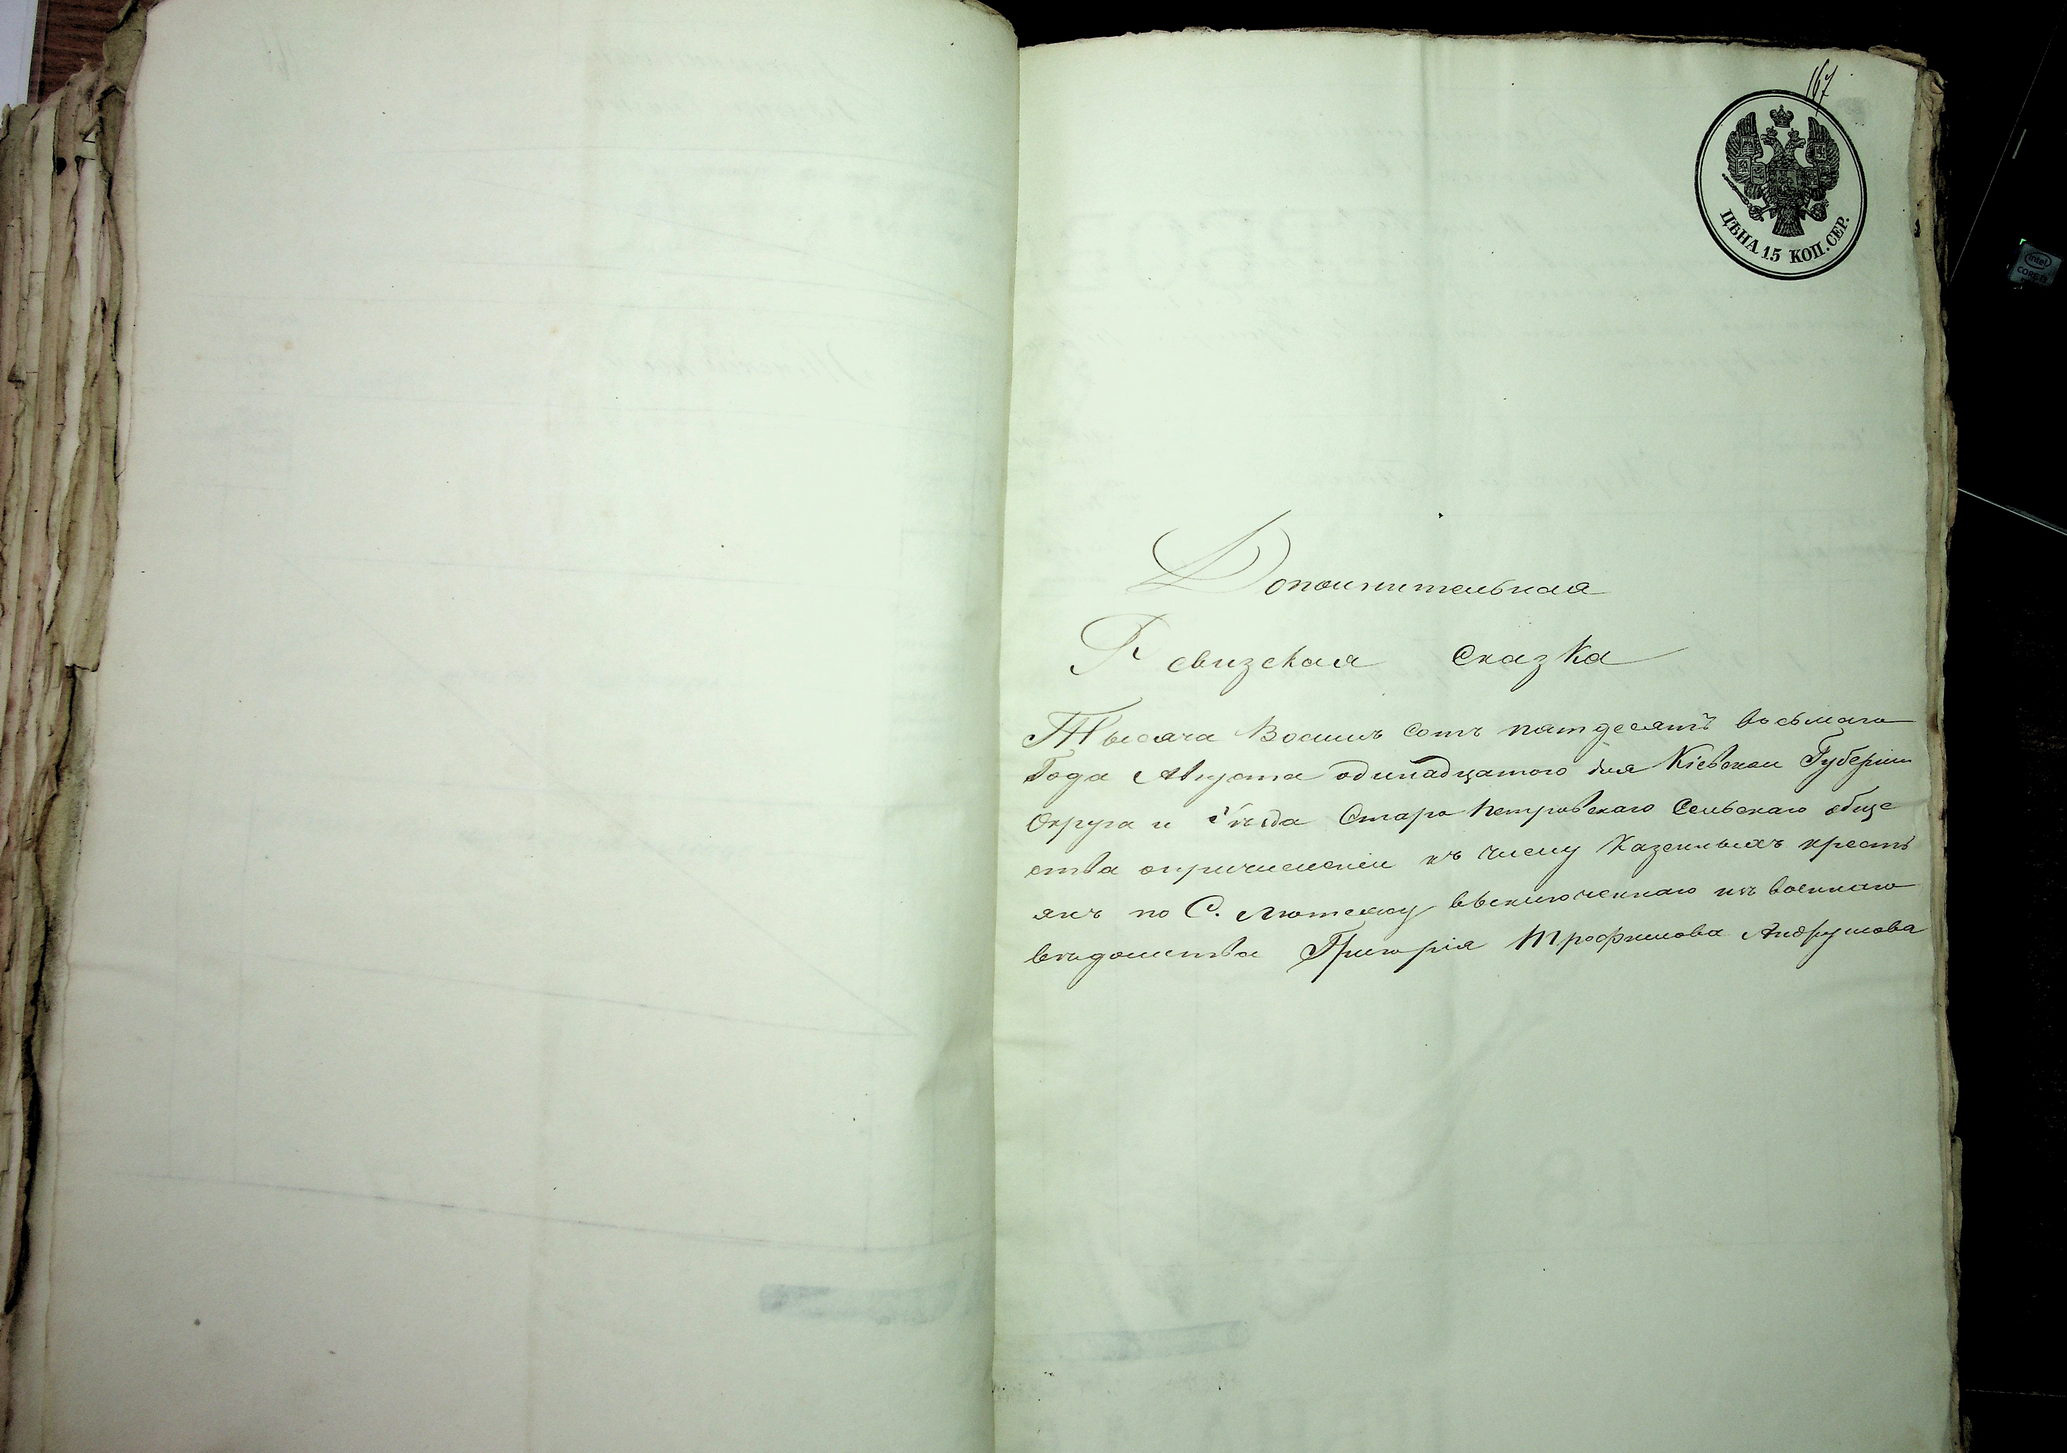 167
ЦѢНА 15 КОП. СЕР.
Дополнительная
Ревизская сказка
Тысяча Восемь сотъ пятдесятъ восьмаго
Года Августа одинадцатого дня Кіевской Губерніи
Округа и уѣзда Старо Петровскаго Сельскаго обще
ства опричисленіи къ числу Казенныхъ кресть
янъ по С. Лютежу выключеннаго изъ военнаго
вѣдомства Григорія Трофимова Андрушова
intel
CORE